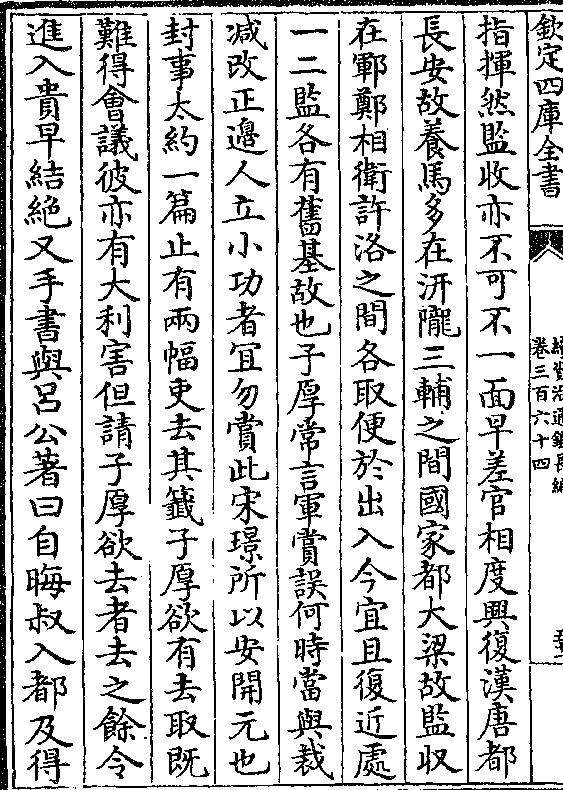 欽定四庫全書
續資治通鑑長編
卷三百六十四
指揮然監收亦不可不一面早差官相度興復漢唐都
長安故養馬多在汧隴三輔之間國家都大梁故監収
在鄆鄭相衛許洛之間各取便於出入今宜且復近處
一二監各有舊基故也子厚常言軍賞誤何時當與裁
减改正邊人立小功者冝勿賞此宋璟所以安開元也
封事太約一篇止有兩幅吏去其籤子厚欲有去取既
難得會議彼亦有大利害但請子厚欲去者去之餘令
進入貴早結絶又手書與吕公著曰自晦叔入都及得